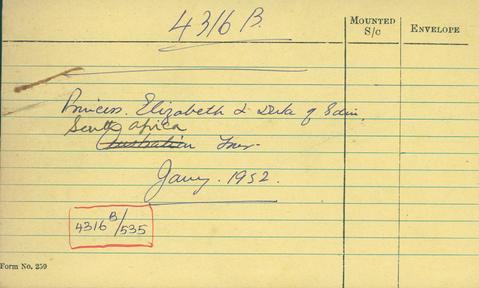 4316 B.
MOUNTED S/C
ENVELOPE
Princess. Elizabeth & Duke of Edin.
South Africa
Australian Tour.
Jany. 1952.
4316 B/535
Form No. 259